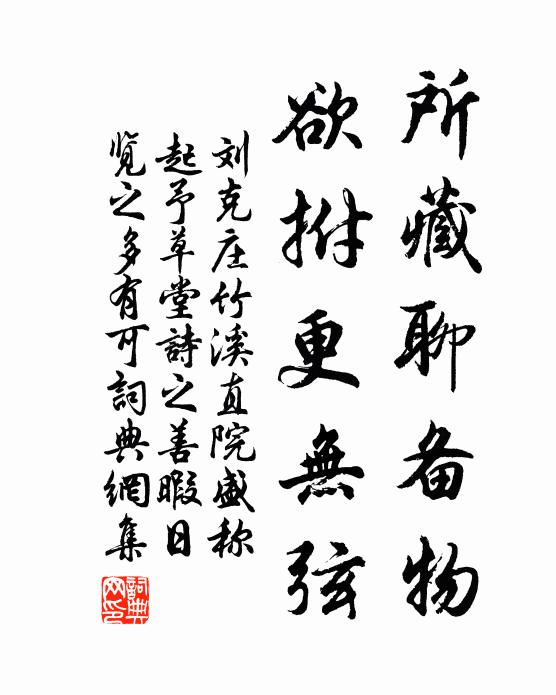 所藏聊备物
欲拊更無弦
刘克庄竹溪直院盛称
起予草堂詩之善暇日
覽之多有可詞典網集
詞典网印